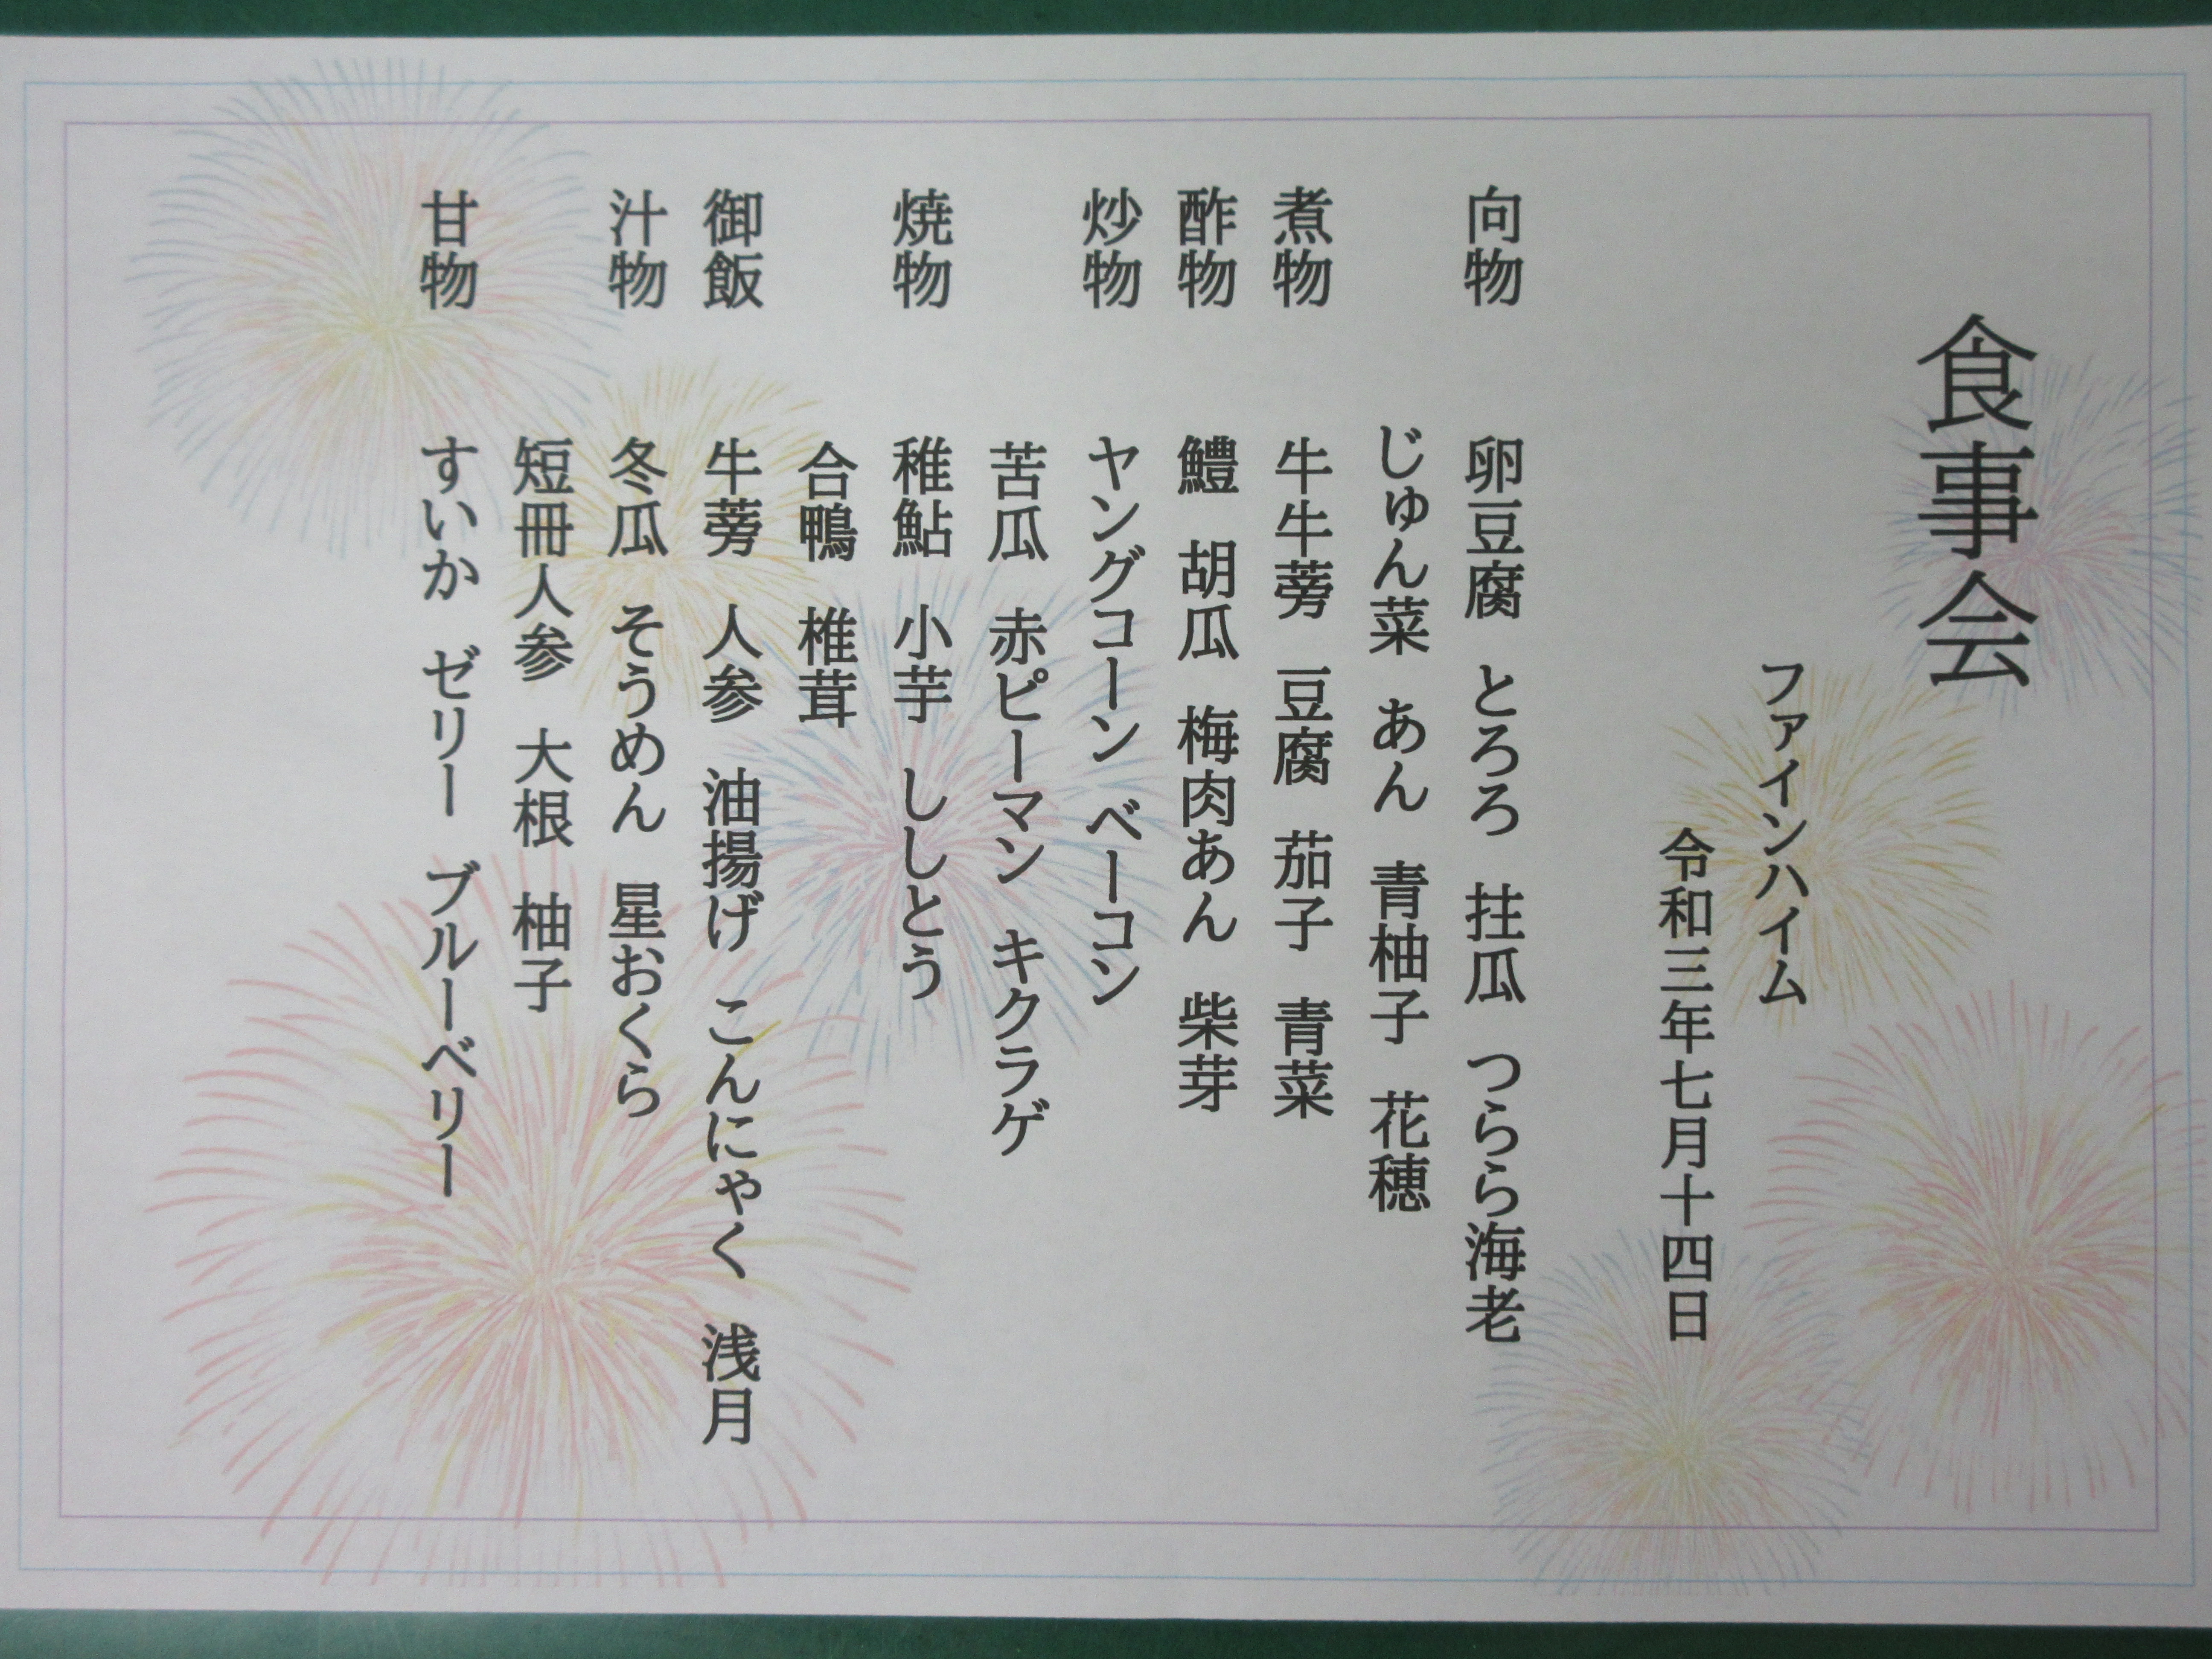 食事会
ファインハイム
令和三年七月十四日
向物 卵豆腐 とろろ 拄瓜 つらら海老
じゅん菜 あん 青柚子 花穂
煮物 牛牛蒡 豆腐 茄子 青菜
酢物 鱧 胡瓜 梅肉あん 柴芽
炒物 ヤングコーン ベーコン
苦瓜 赤ピーマン キクラゲ
焼物 稚鮎 小芋 ししとう
合鴨 椎茸
御飯 牛蒡 人参 油揚げ こんにゃく 浅月
汁物 冬瓜 そうめん 星おくら
短冊人参 大根 柚子
甘物 すいか ゼリー ブルーベリー